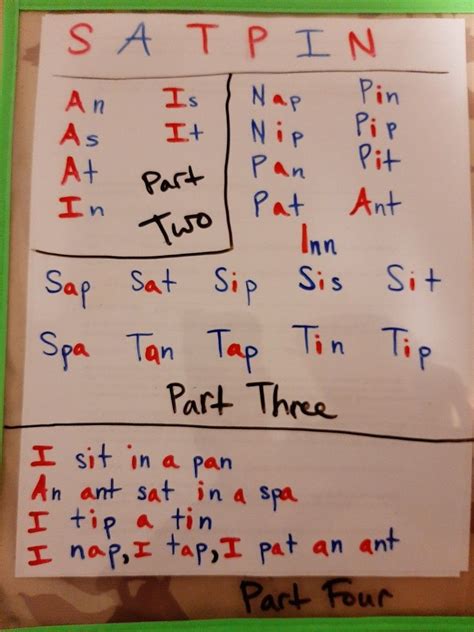 S A T P I N
An Is
As It
At
In
Part
Two
Nap Pin
Nip Pip
Pan Pit
Pat Ant
Inn
Sap Sat Sip Sis Sit
Spa Tan Tap Tin Tip
Part Three
I sit in a pan
An ant sat in a spa
I tip a tin
I nap, I tap, I pat an ant
Part Four